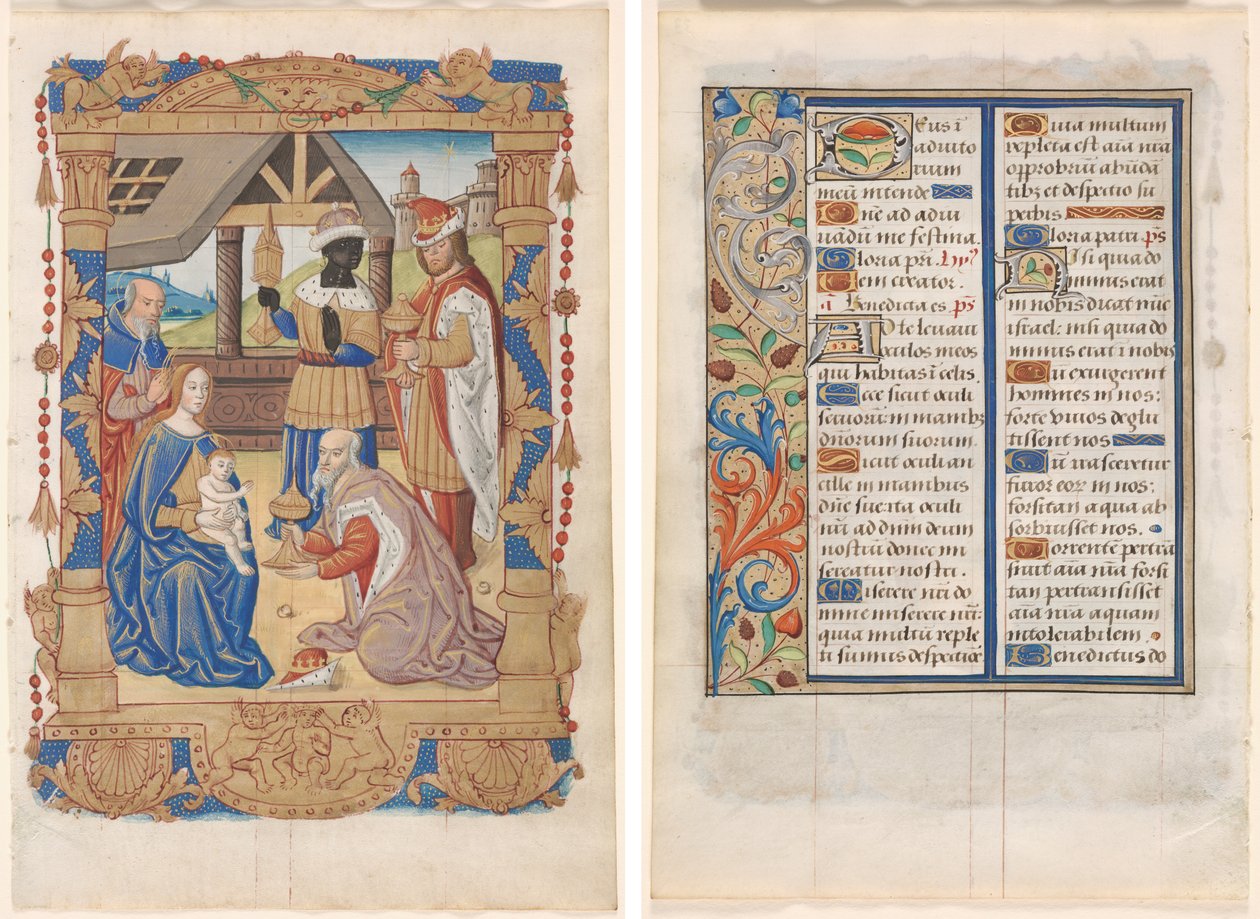 Deus ī
adiuto
rium
meū intende
Dne ad adiu
uādū me festina.
Gloria pri.
Uem creator.
Benedicta es. ps
Ad te leuaui
oculos meos
qui habitas ī celis.
Ecce sicut oculi
seruorum in manibꝰ
dnorum suorum.
Sicut oculi an
cille in manibus
dne sue ita oculi
nrī ad dnm deum
nostrū donec mi
sereatur nostri.
Miserere nrī do
mine miserere nrī:
quia multū reple
ti sumus despectiōe
Quia multum
repleta est aīa nrā
opprobriū abūdā
tibꝰ et despectio su
perbis
Gloria patri. ps
Nisi quia do
minus erat
in nobis dicat nūc
israel: nisi quia do
minus erat ī nobis
Cū exurgerent
homines in nos:
forte viuos deglu
tissent nos
Cū irasceretur
furor eorꝝ in nos:
forsitan aqua ab
sorbuisset nos.
Torrentē pertrā
siuit aīa nrā forsi
tan pertransisset
aīa nrā aquam
intolerabilem.
Benedictus do